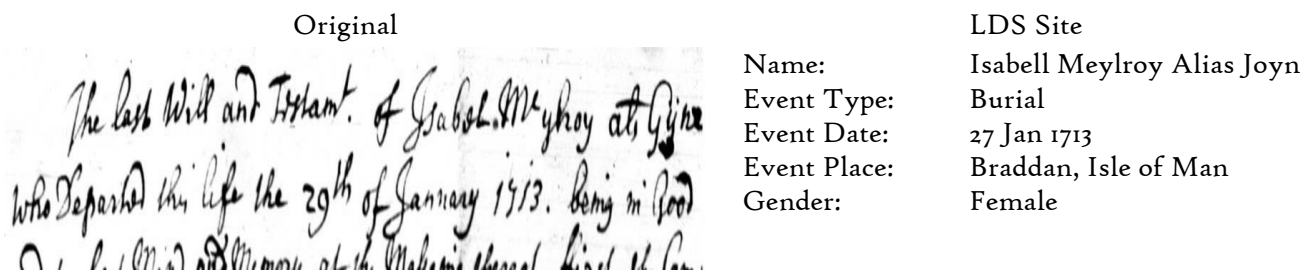 Original
The last Will and Testam^t. of Isabel. M^c ylroy at^s Gyne
who Departed this life the 29^th of January 1713. being in Good
last Mind and Memory at the Makeing thereof first
LDS Site
Name: Isabell Meylroy Alias Joyn
Event Type: Burial
Event Date: 27 Jan 1713
Event Place: Braddan, Isle of Man
Gender: Female